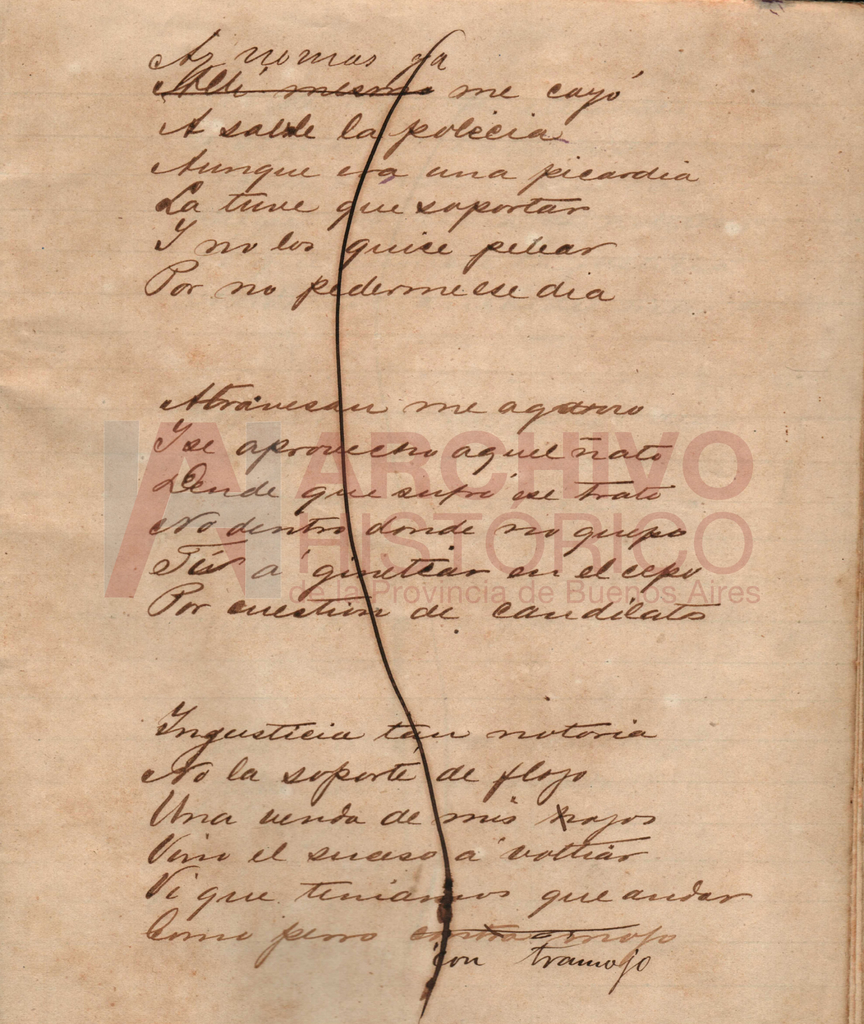 Ay nomas ya
Allí mesmo me cayó
A sable la policia
Aunque era una picardia
La tuve que soportar
I no los quice peliar
Por no perderme ese dia
Atravesau me agarro
I se aprovechó aquel ñato
Dende que sufrí ese trato
No dentro donde no quepo
Fí á ginetiar en el cepo
Por cuestion de candilatos
Injusticia tan notoria
No la soporté de flojo
Una venda de mis ojos
Vino el suceso á voltiar
Vi que teniamos que andar
Como perro
con tramojo
ARCHIVO
HISTÓRICO
de la Provincia de Buenos Aires